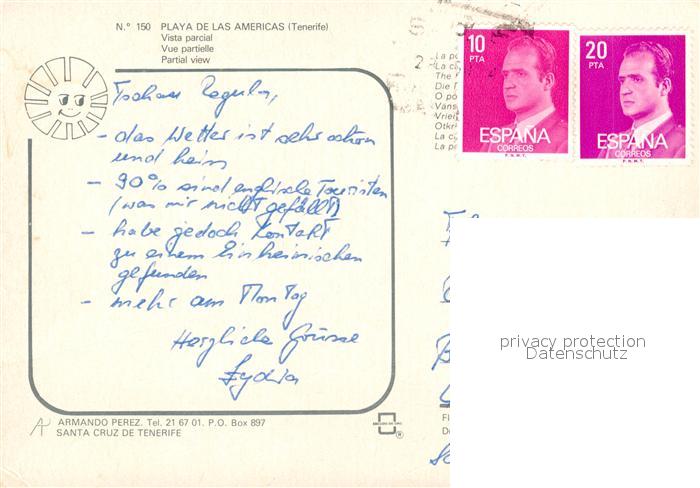 N.º 150 PLAYA DE LAS AMERICAS (Tenerife)
Vista parcial
Vue partielle
Partial view
Tschau Regula,
- das Wetter ist sehr schön
und heiss
- 90% sind englische Touristen
(was mir nicht gefällt)
- habe jedoch Kontakt
zu einem Einheimischen
gefunden
- mehr am Montag
Herzliche Grüsse
Lydia
ARMANDO PEREZ. Tel. 21 67 01. P.O. Box 897
SANTA CRUZ DE TENERIFE
10
PTA
ESPAÑA
CORREOS
F.N.M.T.
20
PTA
ESPAÑA
CORREOS
F.N.M.T.
La
La
The
Die
O
Vans
La
La
privacy protection
Datenschutz